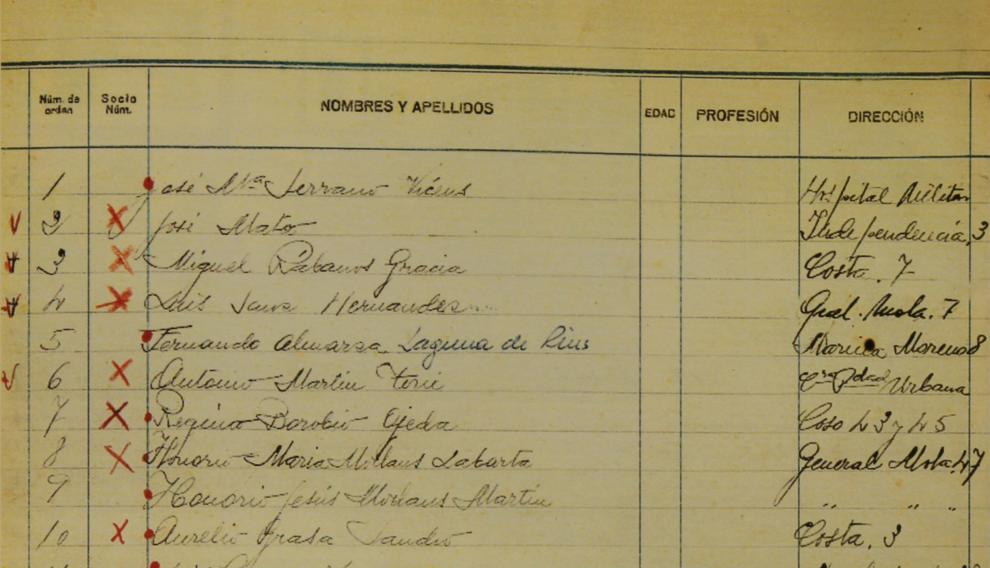 Núm. de orden Socio Núm. NOMBRES Y APELLIDOS EDAD PROFESIÓN DIRECCIÓN
1 José Mª Serrano Vicens Hospital Militar
2 José Mato Independencia, 3
3 Miguel Rábanos Gracia Costa. 7
4 Luis Hernandes Gral. Mola. 7
5 Fernando Almarza Laguna de Rins Moreno 8
6 Antonio Martin Urbana
7 Regino Borobio Ojeda Coso 43 y 45
8 Honorio Maria Morlans Labarta General Mola. 47
9 Honorio Jesús Morlans Martin " " "
10 Aurelio Grasa Sancho Costa. 3